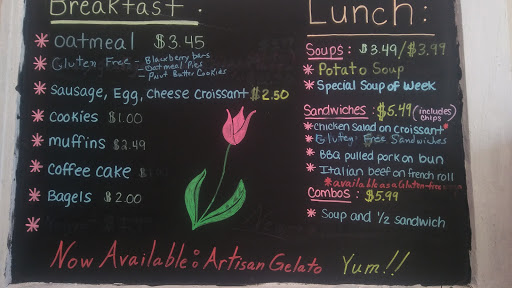 Breakfast:
* Oatmeal $3.45
* Gluten Free - Blueberry bars
- Oatmeal Pies
- Peanut Butter Cookies
* Sausage, Egg, Cheese Croissant $2.50
* Cookies $1.00
* muffins $2.49
* Coffee cake $
* Bagels $2.00
*
Lunch:
Soups: $3.49/$3.99
* Potato Soup
* Special Soup of Week
Sandwiches: $5.49 (includes chips)
* Chicken salad on croissant*
* Gluten Free Sandwiches
* BBQ pulled pork on bun
* Italian beef on french roll
*available as a Gluten-free
Combos: $5.99
* Soup and ½ sandwich
Now Available: Artisan Gelato Yum!!